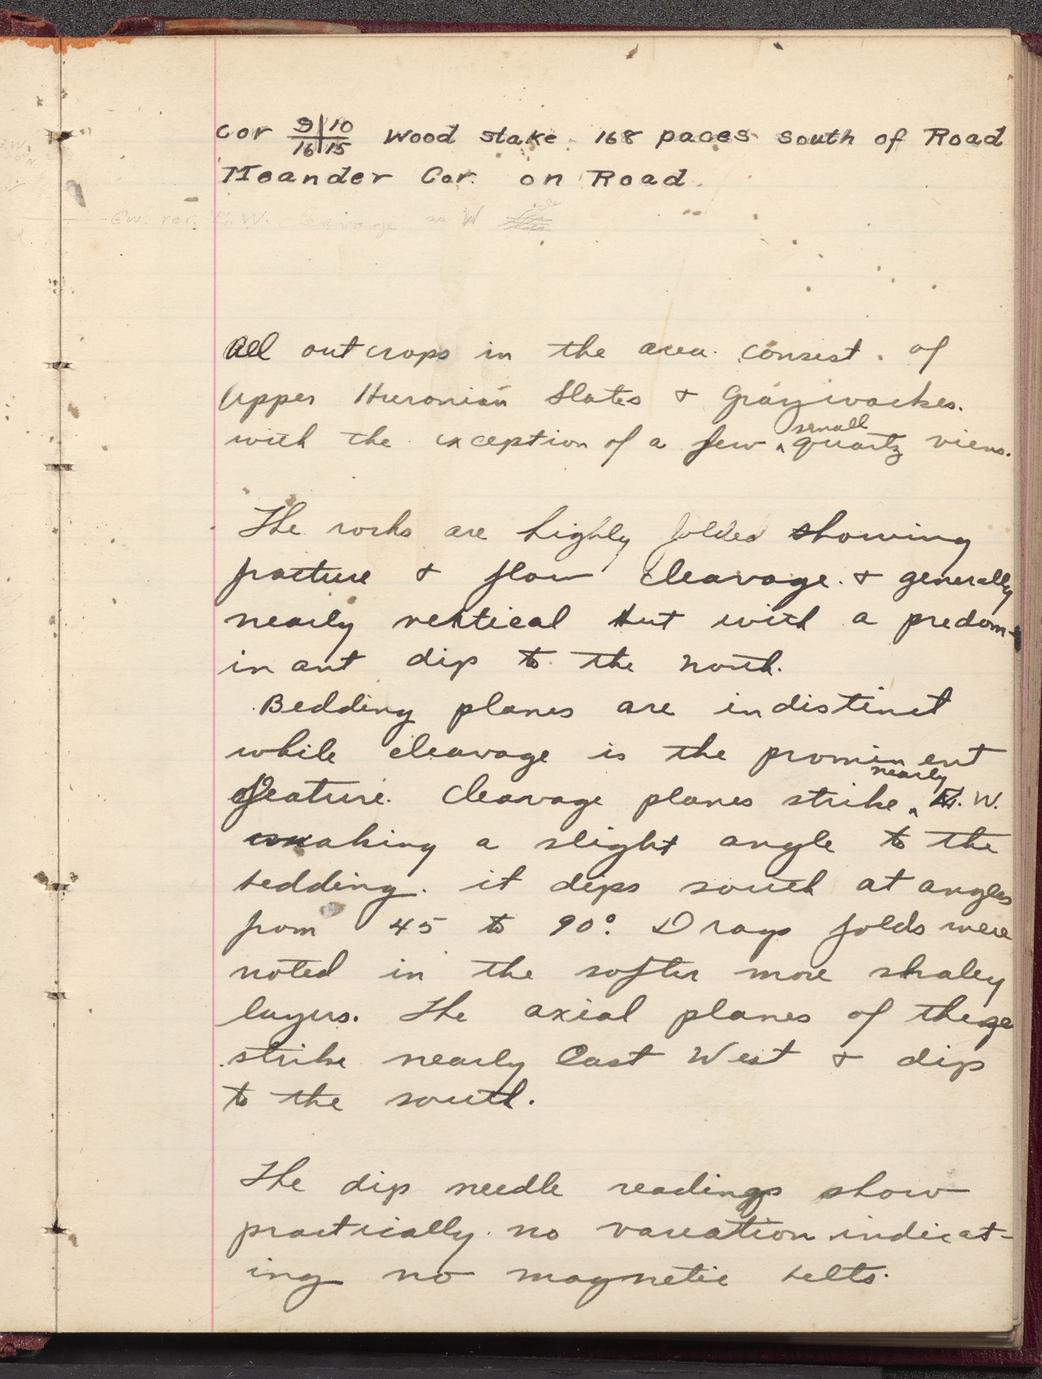 Cor 9|10 Wood stake. 168 paces south of Road
16|15
Meander Cor. on Road.
E.W. cleavage
All outcrops in the area. consist. of
Upper Huronian Slates & Graywackes.
with the exception of a few ‸ small quartz viens.
The rocks are highly folded showing
fracture & flow cleavage. & generally
nearly vertical but with a predom-
inant dip to the north.
Bedding planes are indistinct
while cleavage is the prominent
feature. Cleavage planes strike ‸ nearly E. W.
making a slight angle to the
bedding. it dips south at angles
from 45 to 90°. Drags folds were
noted in the softer more shaley
layers. The axial planes of these
strike nearly East West & dip
to the south.
The dip needle readings show
practically no variation indicat-
ing no magnetic belts.